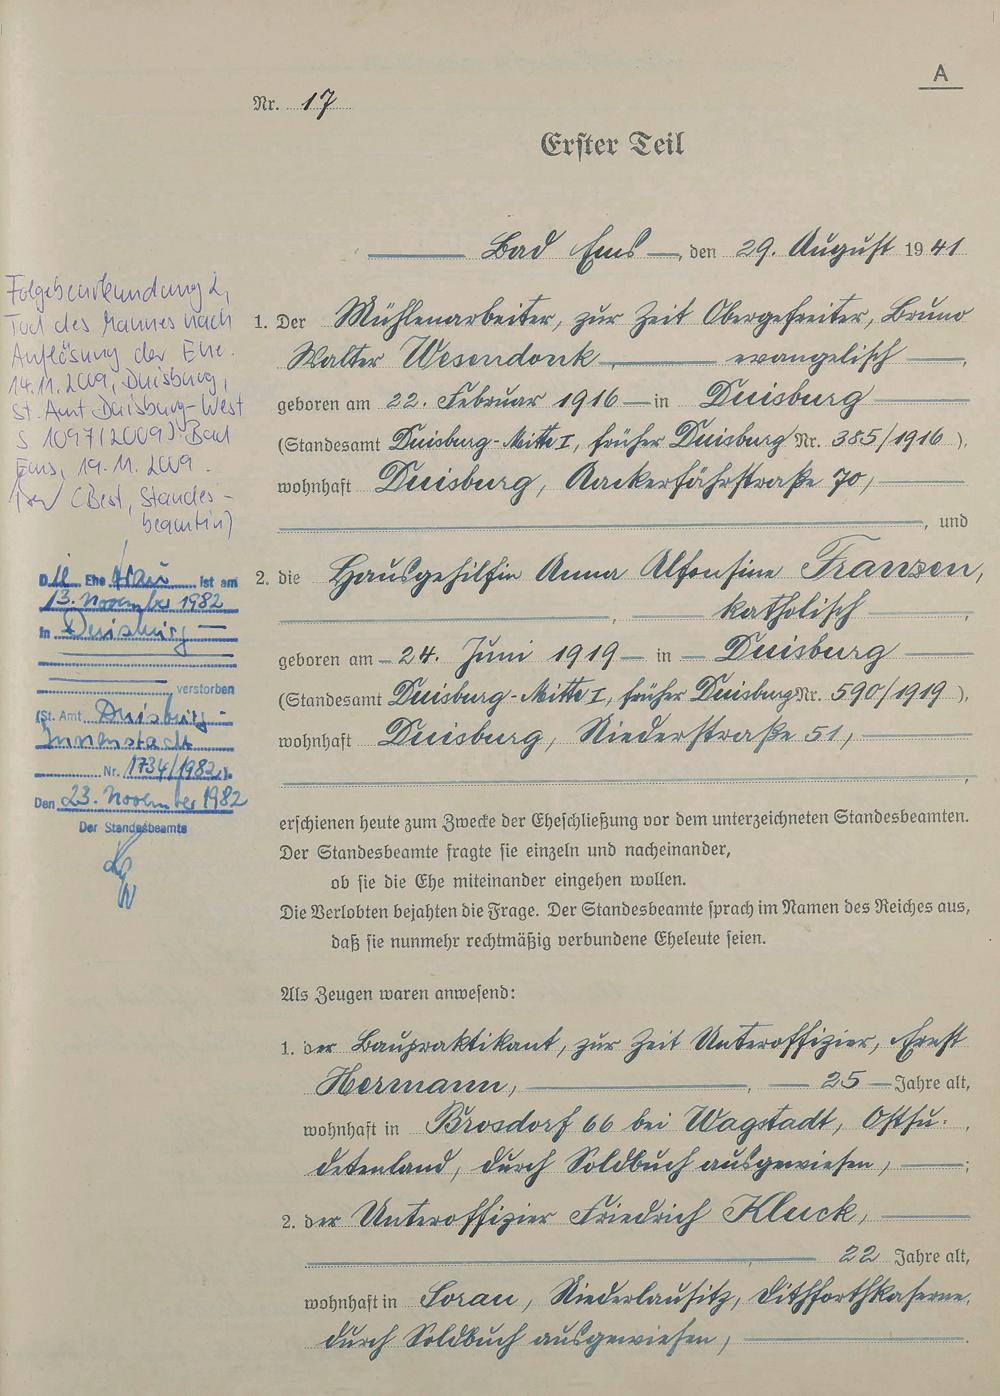 A
Nr. 17
Erster Teil
Bad Ems, den 29. August 1941
1. Der Mühlenarbeiter, zur Zeit Obergefreiter, Bruno
Walter Wesendonk, evangelisch,
geboren am 22. Februar 1916 in Duisburg
(Standesamt Duisburg-Mitte I, früher Duisburg Nr. 385/1916),
wohnhaft Duisburg, Aackerfährstraße 70,
, und
2. die Hausgehilfin Anna Alfonsine Franzen,
, katholisch,
geboren am 24. Juni 1919 in Duisburg
(Standesamt Duisburg-Mitte I, früher Duisburg Nr. 590/1919),
wohnhaft Duisburg, Niederstraße 51,
,
erschienen heute zum Zwecke der Eheschließung vor dem unterzeichneten Standesbeamten.
Der Standesbeamte fragte sie einzeln und nacheinander,
ob sie die Ehe miteinander eingehen wollen.
Die Verlobten bejahten die Frage. Der Standesbeamte sprach im Namen des Reiches aus,
daß sie nunmehr rechtmäßig verbundene Eheleute seien.
Als Zeugen waren anwesend:
1. der Baupraktikant, zur Zeit Unteroffizier, Ernst
Hermann, , 25 Jahre alt,
wohnhaft in Brosdorf 66 bei Wagstadt, Ostsu-
detenland, durch Soldbuch ausgewiesen, ;
2. der Unteroffizier Friedrich Kluck,
, 22 Jahre alt,
wohnhaft in Sorau, Niederlausitz, Dithforthkaserne,
durch Soldbuch ausgewiesen, .
Folgebeurkundung 2,
Tod des Mannes nach
Auflösung der Ehe.
14.11.2009, Duisburg,
St. Amt Duisburg-West
S 1097/2009). Bad
Ems, 19.11.2009.
(Best, Standes-
beamtin)
Die Ehefrau ist am
13. November 1982
in Duisburg
verstorben
(St. Amt Duisburg-
Innenstadt
Nr. 1734/1982).
Den 23. November 1982
Der Standesbeamte